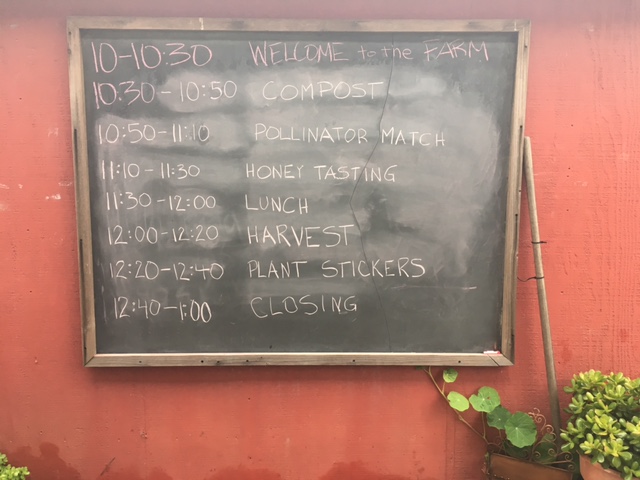 10-10:30 WELCOME to the FARM
10:30-10:50 COMPOST
10:50-11:10 POLLINATOR MATCH
11:10-11:30 HONEY TASTING
11:30-12:00 LUNCH
12:00-12:20 HARVEST
12:20-12:40 PLANT STICKERS
12:40-1:00 CLOSING